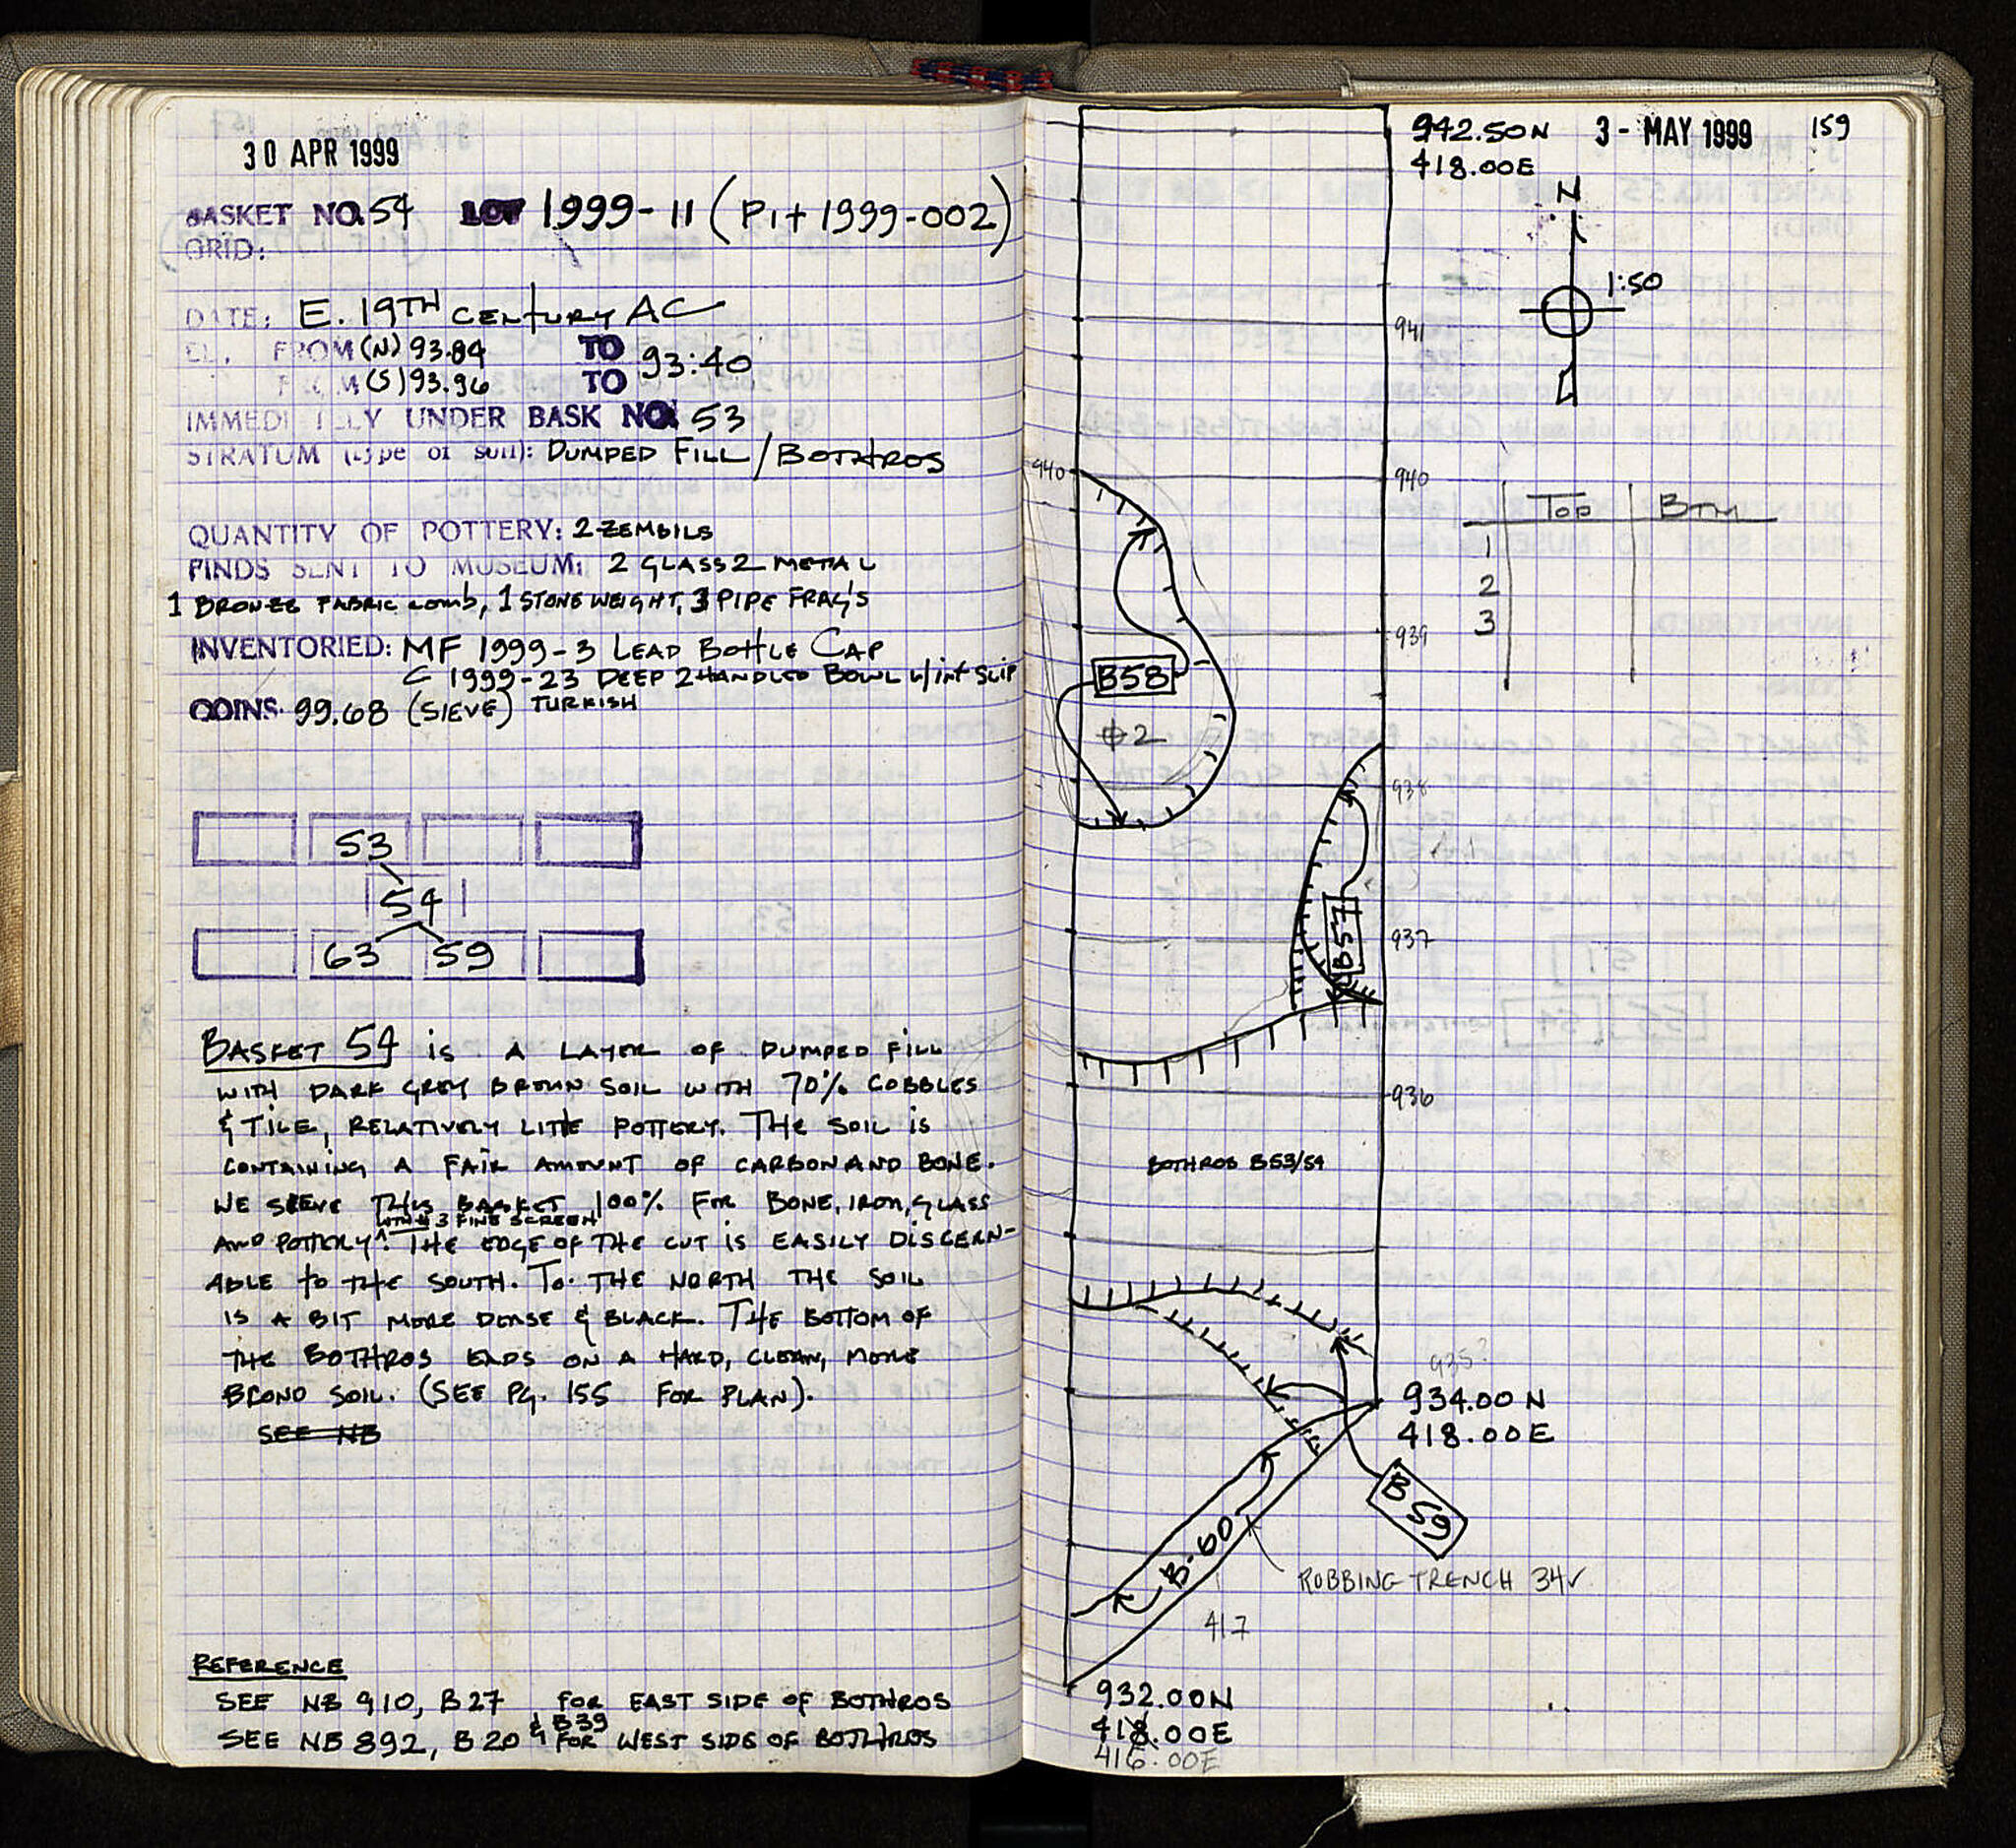 30 APR 1999
BASKET NO. 54 LOT 1999-11 (Pit 1999-002)
GRID:
DATE: E. 19TH CENTURY AC
EL. FROM (N) 93.84 TO 93.40
FROM (S) 93.96 TO
IMMEDIATELY UNDER BASK NO. 53
STRATUM (type of soil): DUMPED FILL/BOTHROS
QUANTITY OF POTTERY: 2 ZEMBILS
FINDS SENT TO MUSEUM: 2 GLASS 2 METAL
1 BRONZE FABRIC COMB, 1 STONE WEIGHT, 3 PIPE FRAG'S
INVENTORIED: MF 1999-3 LEAD BOTTLE CAP
C 1999-23 DEEP 2 HANDLED BOWL W/INT SLIP
COINS. 99.68 (SIEVE) TURKISH
53
54
63 59
BASKET 54 IS A LAYER OF DUMPED FILL
WITH DARK GREY BROWN SOIL WITH 70% COBBLES
& TILE, RELATIVELY LITTLE POTTERY. THE SOIL IS
CONTAINING A FAIR AMOUNT OF CARBON AND BONE.
WE SIEVE THIS BASKET 100% FOR BONE, IRON, GLASS
AND POTTERY ^ WITH #3 FINE SCREEN. THE EDGE OF THE CUT IS EASILY DISCERN-
ABLE TO THE SOUTH. TO THE NORTH THE SOIL
IS A BIT MORE DENSE & BLACK. THE BOTTOM OF
THE BOTHROS ENDS ON A HARD, CLEAN, MORE
BROND SOIL. (SEE PG. 155 FOR PLAN).
SEE NB
REFERENCE
SEE NB 910, B27 FOR EAST SIDE OF BOTHROS
SEE NB 892, B20 & B39 FOR WEST SIDE OF BOTHROS
942.50N 3 - MAY 1999 159
418.00E
N
1:50
941
940
940
TOP BTM
1
2
3
939
B58
2
938
B57
937
936
BOTHROS B53/54
935?
934.00 N
418.00E
B59
B-60
ROBBING TRENCH 34V
417
932.00N
418.00E
416.00E